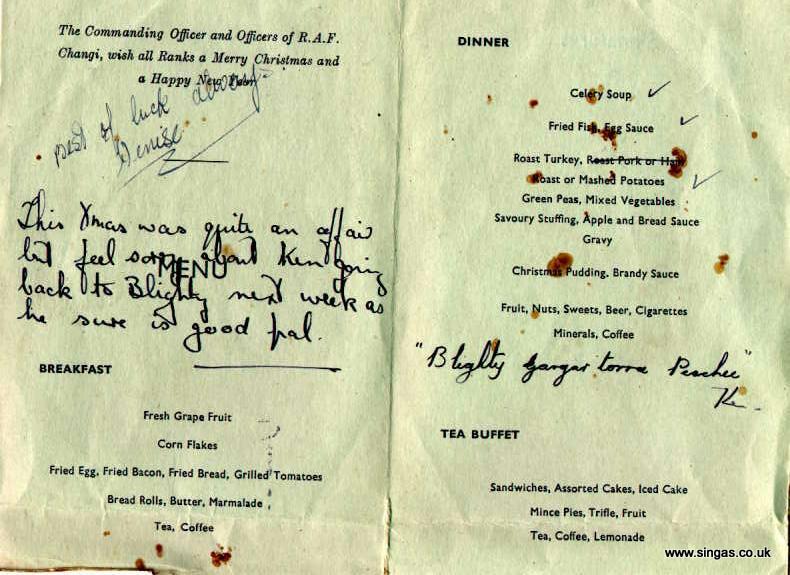 The Commanding Officer and Officers of R.A.F.
Changi, wish all Ranks a Merry Christmas and
a Happy New Year
Best of luck always
Denise
This Xmas was quite an affair
but feel sorry about Ken going
MENU
back to Blighty next week as
he sure is good pal.
BREAKFAST
Fresh Grape Fruit
Corn Flakes
Fried Egg, Fried Bacon, Fried Bread, Grilled Tomatoes
Bread Rolls, Butter, Marmalade
Tea, Coffee
DINNER
Celery Soup
Fried Fish, Egg Sauce
Roast Turkey, Roast Pork or Ham
Roast or Mashed Potatoes
Green Peas, Mixed Vegetables
Savoury Stuffing, Apple and Bread Sauce
Gravy
Christmas Pudding. Brandy Sauce
Fruit, Nuts, Sweets, Beer, Cigarettes
Minerals, Coffee
"Blighty torra Peechee"
Ken
TEA BUFFET
Sandwiches, Assorted Cakes, Iced Cake
Mince Pies, Trifle, Fruit
Tea, Coffee, Lemonade
www.singas.co.uk